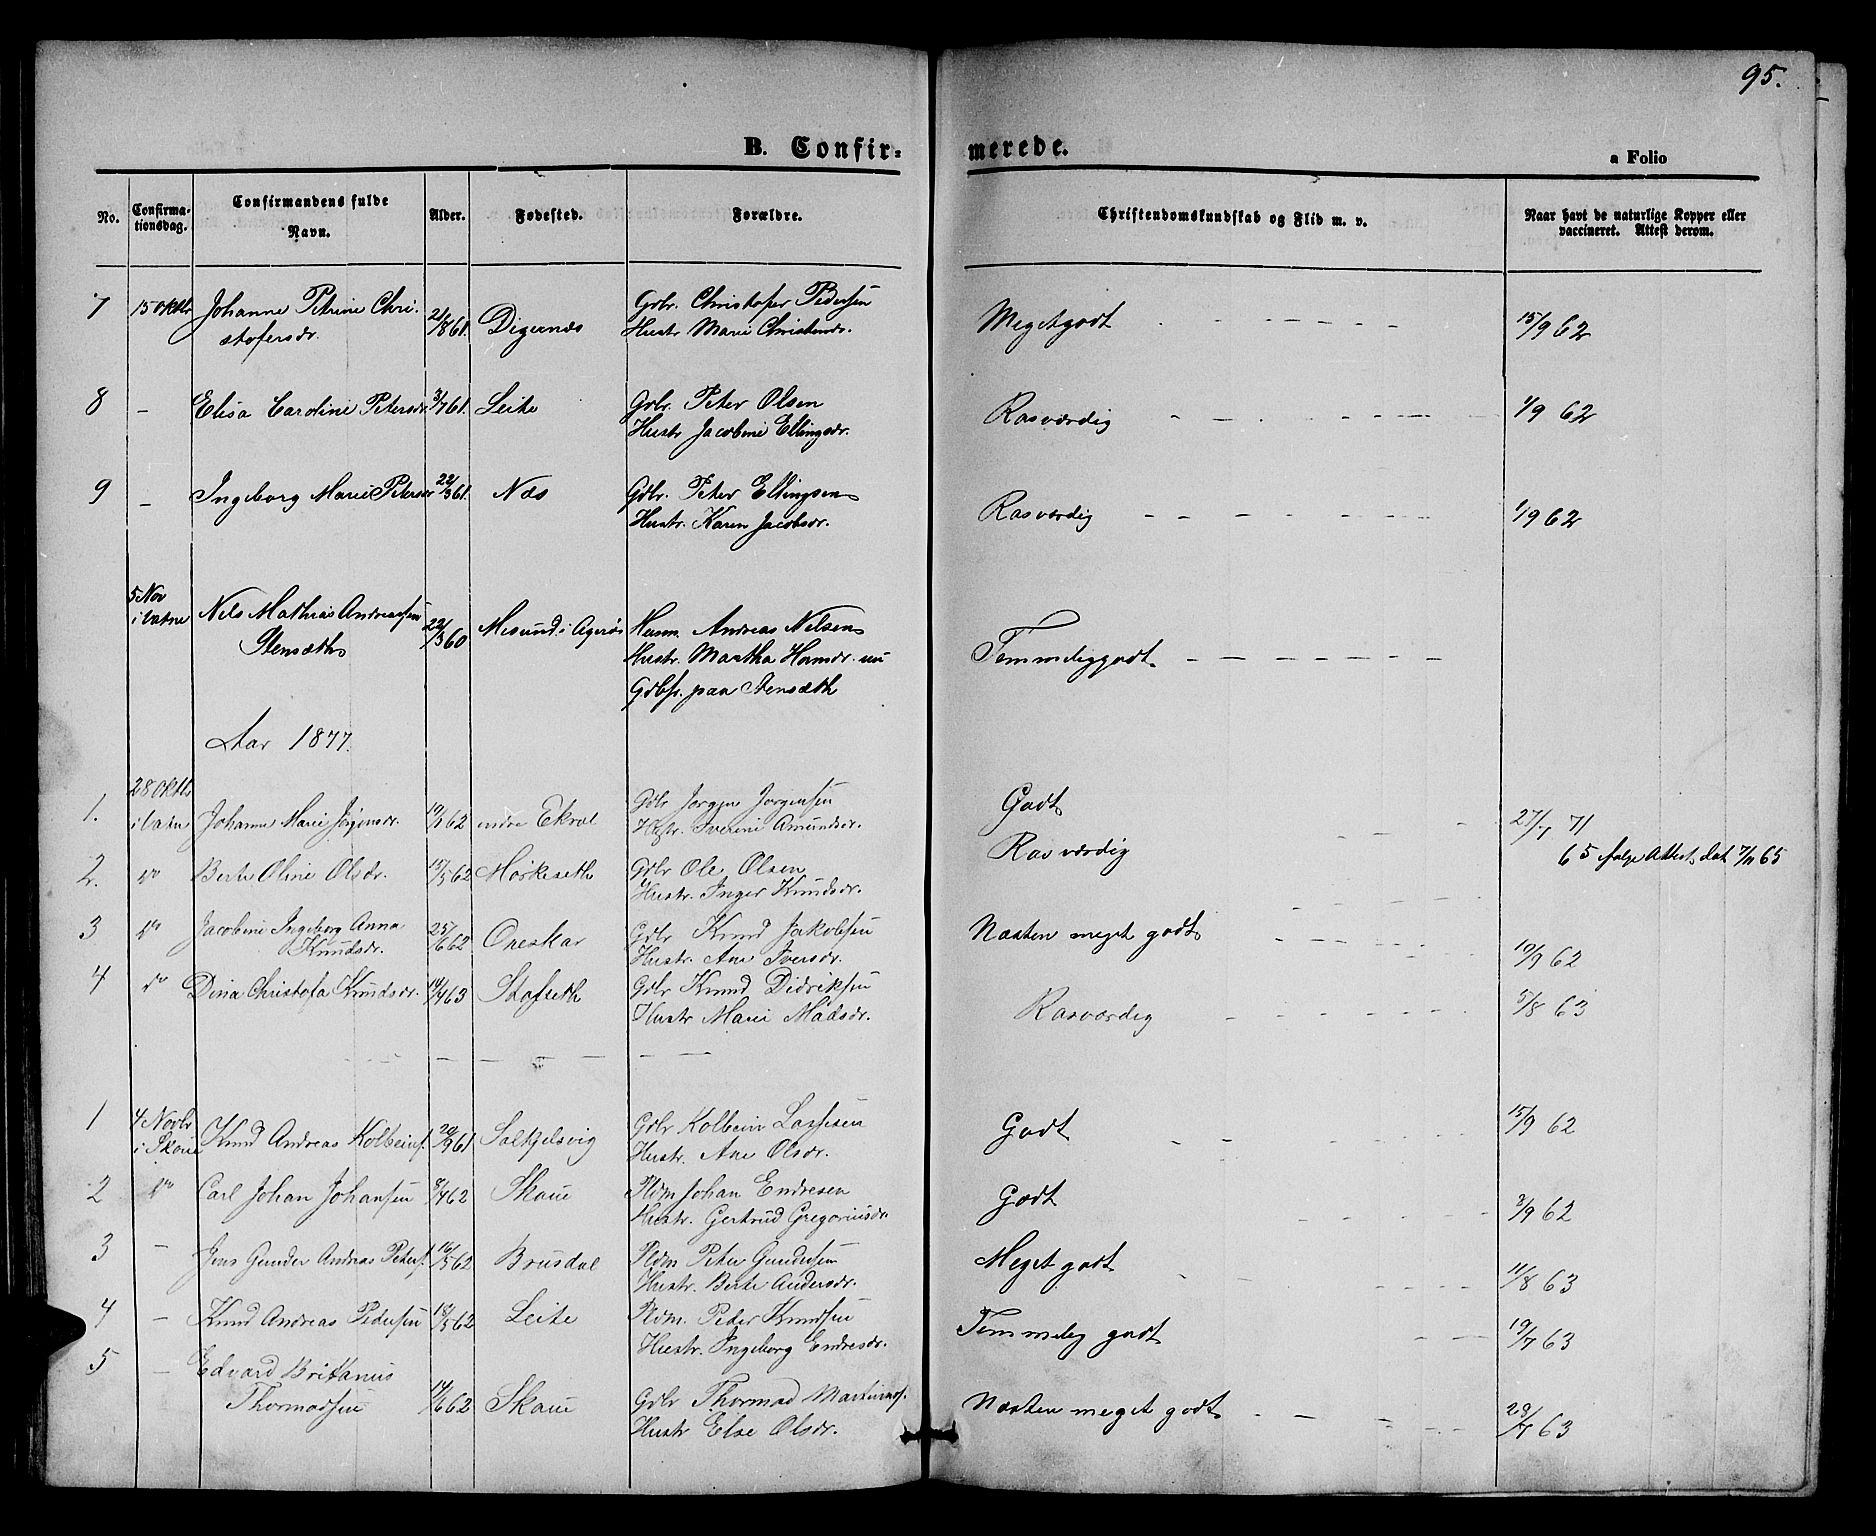 95.
B. Confir-
merede.
a Folio
No.
Confirma-
tionsdag.
Confirmandens fulde
Navn.
Alder.
Fødested.
Forældre.
Christendomskundskab og Flid m. v.
Naar havt de naturlige Kopper eller
vaccineret. Attest derom.
7 15 Oktbr Johanne Petrine Chri-
stofersdr. 21/8 61. Digernæs
Gdbr. Christofer Pedersen
Hustr Marie Christensdr.
Megetgodt
15/9 62
8 – Elisa Caroline Petersdr. 3/7 61. Leite
Gdbr. Peter Olsen
Hustr Jacobine Ellingsdr.
Rosværdig
1/9 62
9 – Ingeborg Marie Petersdr 22/3 61. Næs
Gdbr. Peter Ellingsen
Hustr. Karen Jacobsdr.
Rosværdig
1/9 62
5 Nov
i Vatne
Nils Mathias Andreassen
Stensæth
22/3 60
Misund i Agerø
Husm. Andreas Nilsen
Hustr. Martha Hansdr. nu
Gdbf. paa Stensæth
Temmeliggodt
Aar 1877.
1. 28 Oktb
i Vatne Johanne Marie Jörgensdr. 19/1 62 indre Ekrol
Gdbr Jorgen Jorgensen
Hustr. Iverine Amundsdr.
Godt
27/7 71
2. do Berte Oline Olsdr. 15/5 62 Morkeseth
Gdbr Ole Olsen
Hustr. Inger Knudsdr.
Rosværdig
65 ifølge Attest dat 7/11 65
3 do Jacobine Ingeborg Anna
Knudsdr. 25/6 62 Oneskar
Gdbr Knud Jakobsen
Hustr. Ane Iversdr.
Næsten meget godt
19/9 62
4 do Dina Christofa Knudsdr. 14/4 63 Stafseth
Gdbr Knud Didriksen
Hustr Marie Madsdr.
Rosværdig
5/8 63
1 4 Novbr
i Skoue Knud Andreas Kolbeinsf. 20/9 61 Solkjelsvig
Gdbr Kolbein Lassesen
Hustr. Ane Olsdr.
Godt
15/9 62
2 do Carl Johan Johansen 8/4 62 Skoue
Pldm Johan Endresen
Hustr. Gertrud Gregoriusdr.
Godt
3/9 62
3 – Jens Gunder Andreas Petersf. 16/5 62 Brusdal
Pldm Peter Gundersen
Hustr. Berte Andersdr.
Meget godt
11/8 63
4 – Knud Andreas Pedersen 18/5 62 Leite
Pldm. Peder Knudsen
Hustr. Ingeborg Endresdr.
Temmelig godt
19/7 63
5 – Edvard Britanius
Thormodsen 14/6 62 Skoue
Gdbr Thormod Martinusf.
Hustr Else Olsdr.
Næsten meget godt
29/7 63